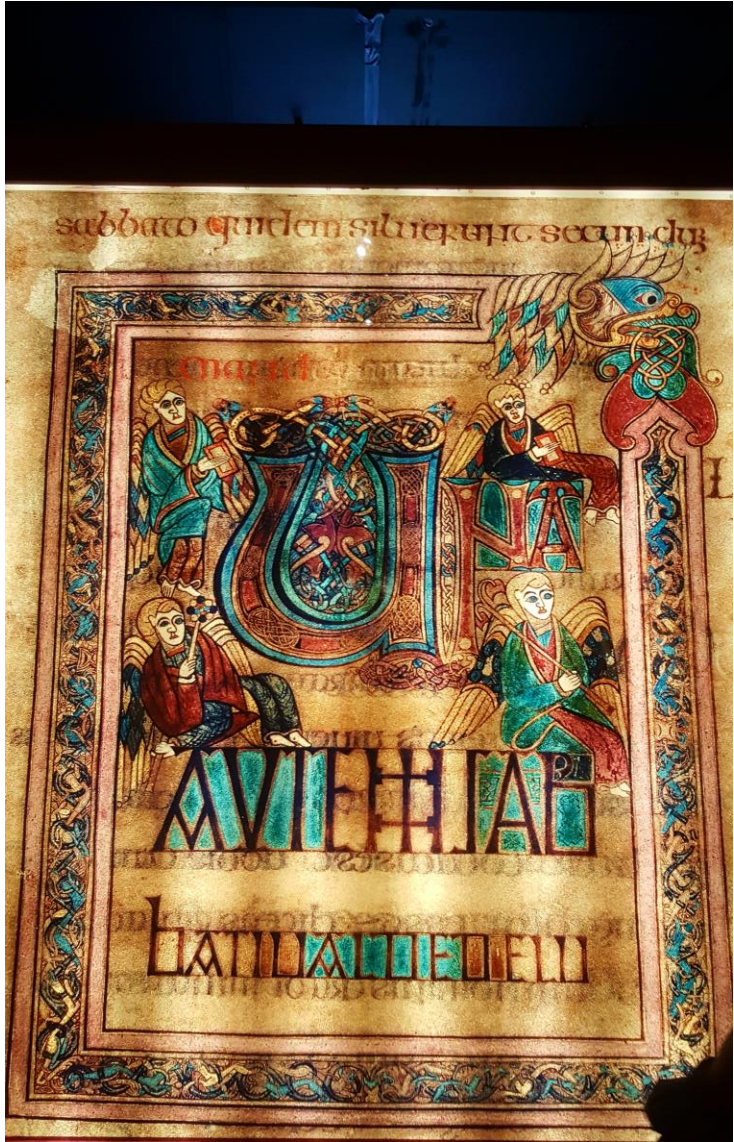 sabbato quidem siluerunt secundum
mandat
UNA
AUTEM SAB
BATI UALDE DELU